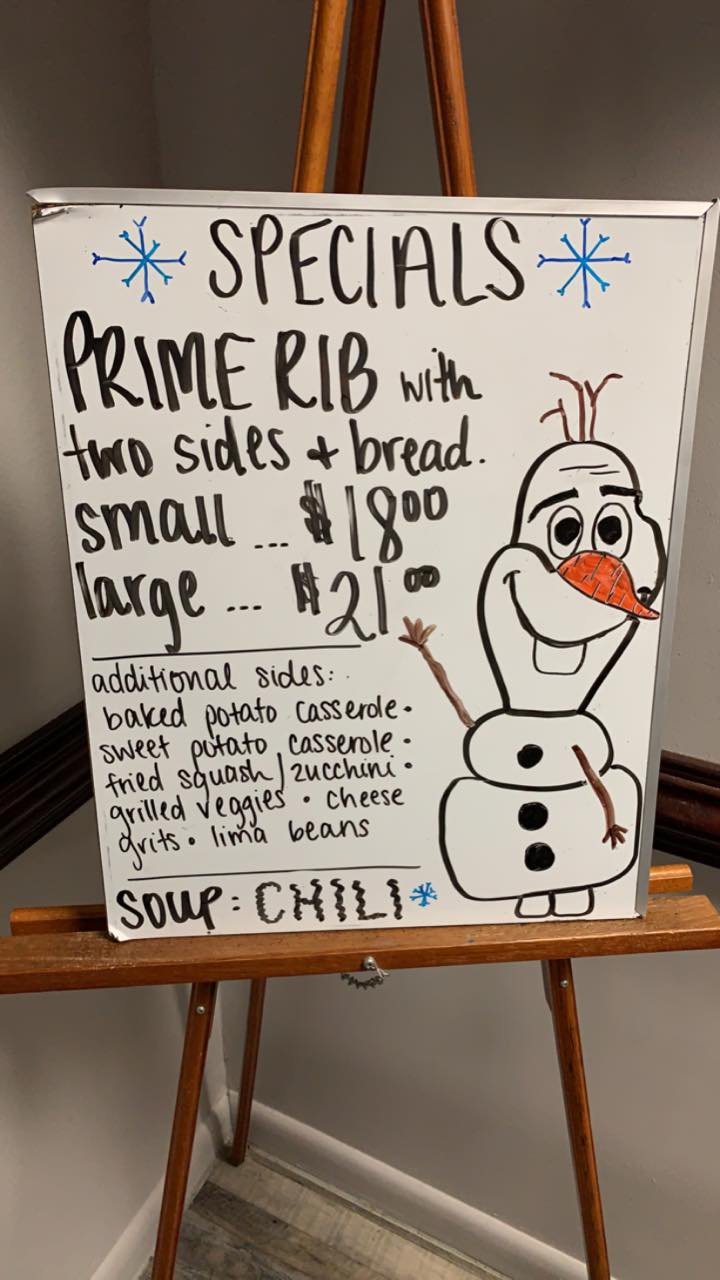 SPECIALS
PRIME RIB with
two sides + bread.
small ... $18⁰⁰
large ... $21⁰⁰
additional sides:
baked potato casserole •
sweet potato casserole •
fried squash / zucchini •
grilled veggies • cheese
grits • lima beans
SOUP: CHILI